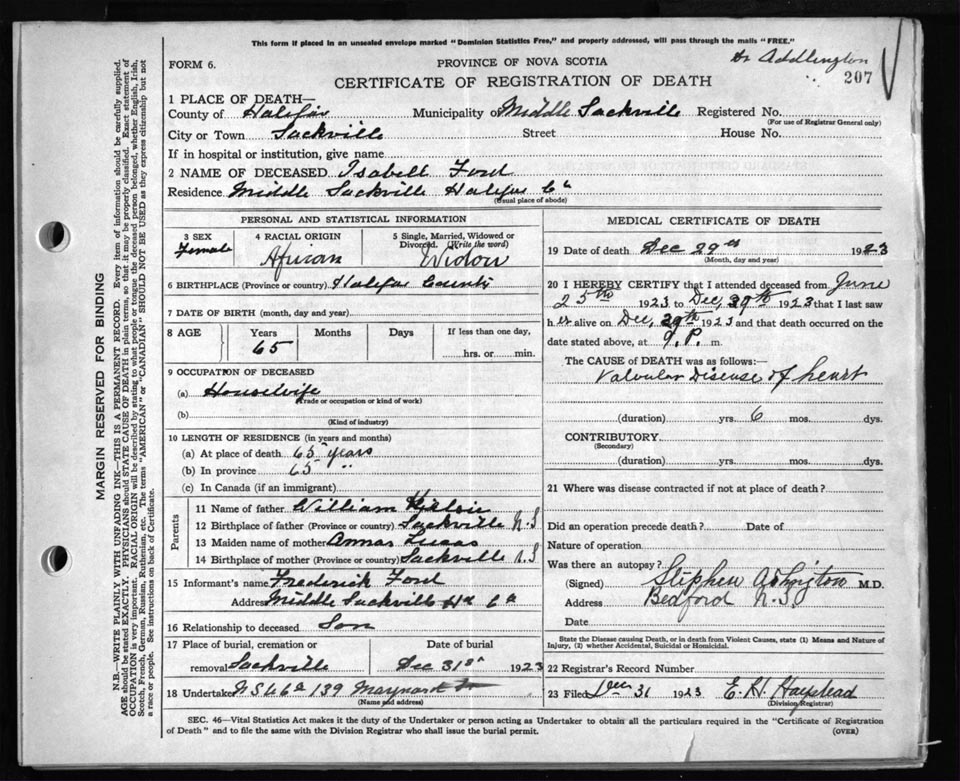 This form if placed in an unsealed envelope marked "Dominion Statistics Free," and properly addressed, will pass through the mails "FREE."
Dr Addlington
207
FORM 6.
PROVINCE OF NOVA SCOTIA
CERTIFICATE OF REGISTRATION OF DEATH
1 PLACE OF DEATH—
County of Halifax Municipality of Middle Sackville Registered No.
(For use of Registrar General only)
City or Town Sackville Street House No.
If in hospital or institution, give name
2 NAME OF DECEASED Isabell Ford
Residence Middle Sackville Halifax Co
(Usual place of abode)
PERSONAL AND STATISTICAL INFORMATION
3 SEX
Female
4 RACIAL ORIGIN
African
5 Single, Married, Widowed or Divorced. (Write the word)
Widow
6 BIRTHPLACE (Province or country) Halifax County
7 DATE OF BIRTH (month, day and year)
8 AGE Years Months Days If less than one day,
65 hrs. or min.
9 OCCUPATION OF DECEASED
(a) Housewife
(Trade or occupation or kind of work)
(b)
(Kind of industry)
10 LENGTH OF RESIDENCE (in years and months)
(a) At place of death 65 years
(b) In province 65 "
(c) In Canada (if an immigrant)
Parents
11 Name of father William
12 Birthplace of father (Province or country) Sackville N.S
13 Maiden name of mother Annas Lucas
14 Birthplace of mother (Province or country) Sackville N.S
15 Informant's name Frederick Ford
Address Middle Sackville Hx Co
16 Relationship to deceased Son
17 Place of burial, cremation or removal Sackville
Date of burial
Dec 31st 1923
18 Undertaker 139 Maynard
(Name and address)
MEDICAL CERTIFICATE OF DEATH
19 Date of death Dec 29th 1923
(Month, day and year)
20 I HEREBY CERTIFY that I attended deceased from June
25th 1923 to Dec, 29th 1923 that I last saw
h er alive on Dec, 29th 1923 and that death occurred on the
date stated above, at 9. P. m.
The CAUSE of DEATH was as follows:—
Valvular Disease of heart
(duration) yrs. 6 mos. dys.
CONTRIBUTORY
(Secondary)
(duration) yrs. mos. dys.
21 Where was disease contracted if not at place of death?
Did an operation precede death? Date of
Nature of operation
Was there an autopsy?
(Signed) Stephen M.D.
Address Bedford N.S
Date
State the Disease causing Death, or in death from Violent Causes, state (1) Means and Nature of Injury, (2) whether Accidental, Suicidal or Homicidal.
22 Registrar's Record Number
23 Filed Dec 31 1923 E. H.
(Division Registrar)
SEC. 46—Vital Statistics Act makes it the duty of the Undertaker or person acting as Undertaker to obtain all the particulars required in the "Certificate of Registration
of Death" and to file the same with the Division Registrar who shall issue the burial permit.
(OVER)
MARGIN RESERVED FOR BINDING
N.B.—WRITE PLAINLY WITH UNFADING INK—THIS IS A PERMANENT RECORD. Every item of information should be carefully supplied.
AGE should be stated EXACTLY. PHYSICIANS should STATE CAUSE OF DEATH in plain terms, so that it may be properly classified. Exact statement of
OCCUPATION is very important. RACIAL ORIGIN will be described by stating to what people or tongue the deceased person belonged, whether English, Irish,
Scotch, French, German, Russian, Ruthenian, etc. The terms "AMERICAN" or "CANADIAN" SHOULD NOT BE USED as they express citizenship but not
a race or people. See instructions on back of Certificate.